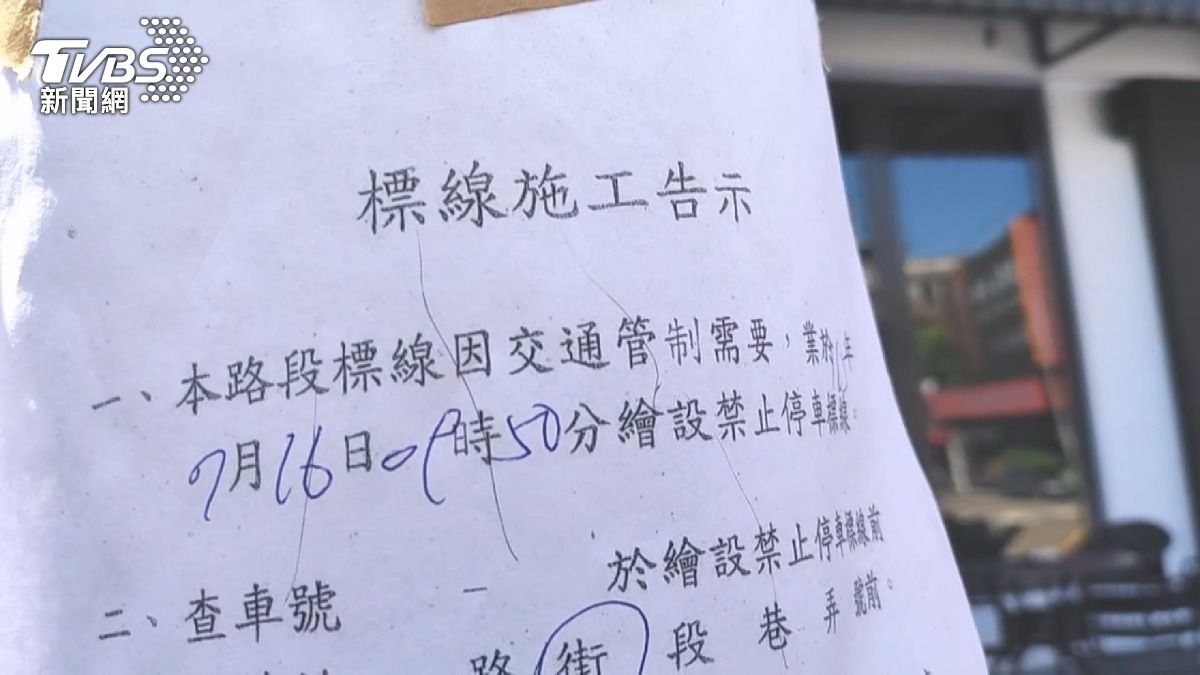 TVBS
新聞網
標線施工告示
一、本路段標線因交通管制需要，業於年
7月16日09時50分繪設禁止停車標線。
二、查車號 – 於繪設禁止停車標線前
路街段巷弄號前。